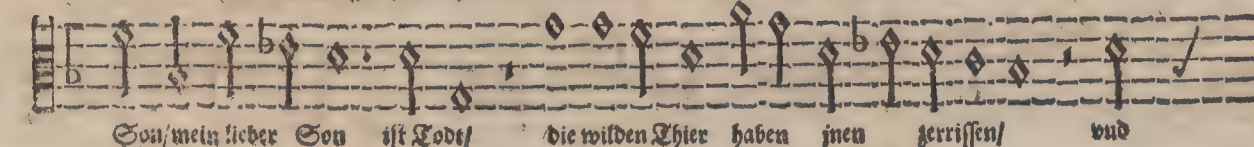 Son/mein lieber Son ist Todt/ die wilden Thier haben jnen zerrissen/ vnd